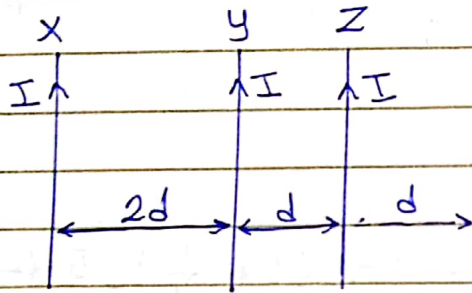 X y Z
I I I
2d d d